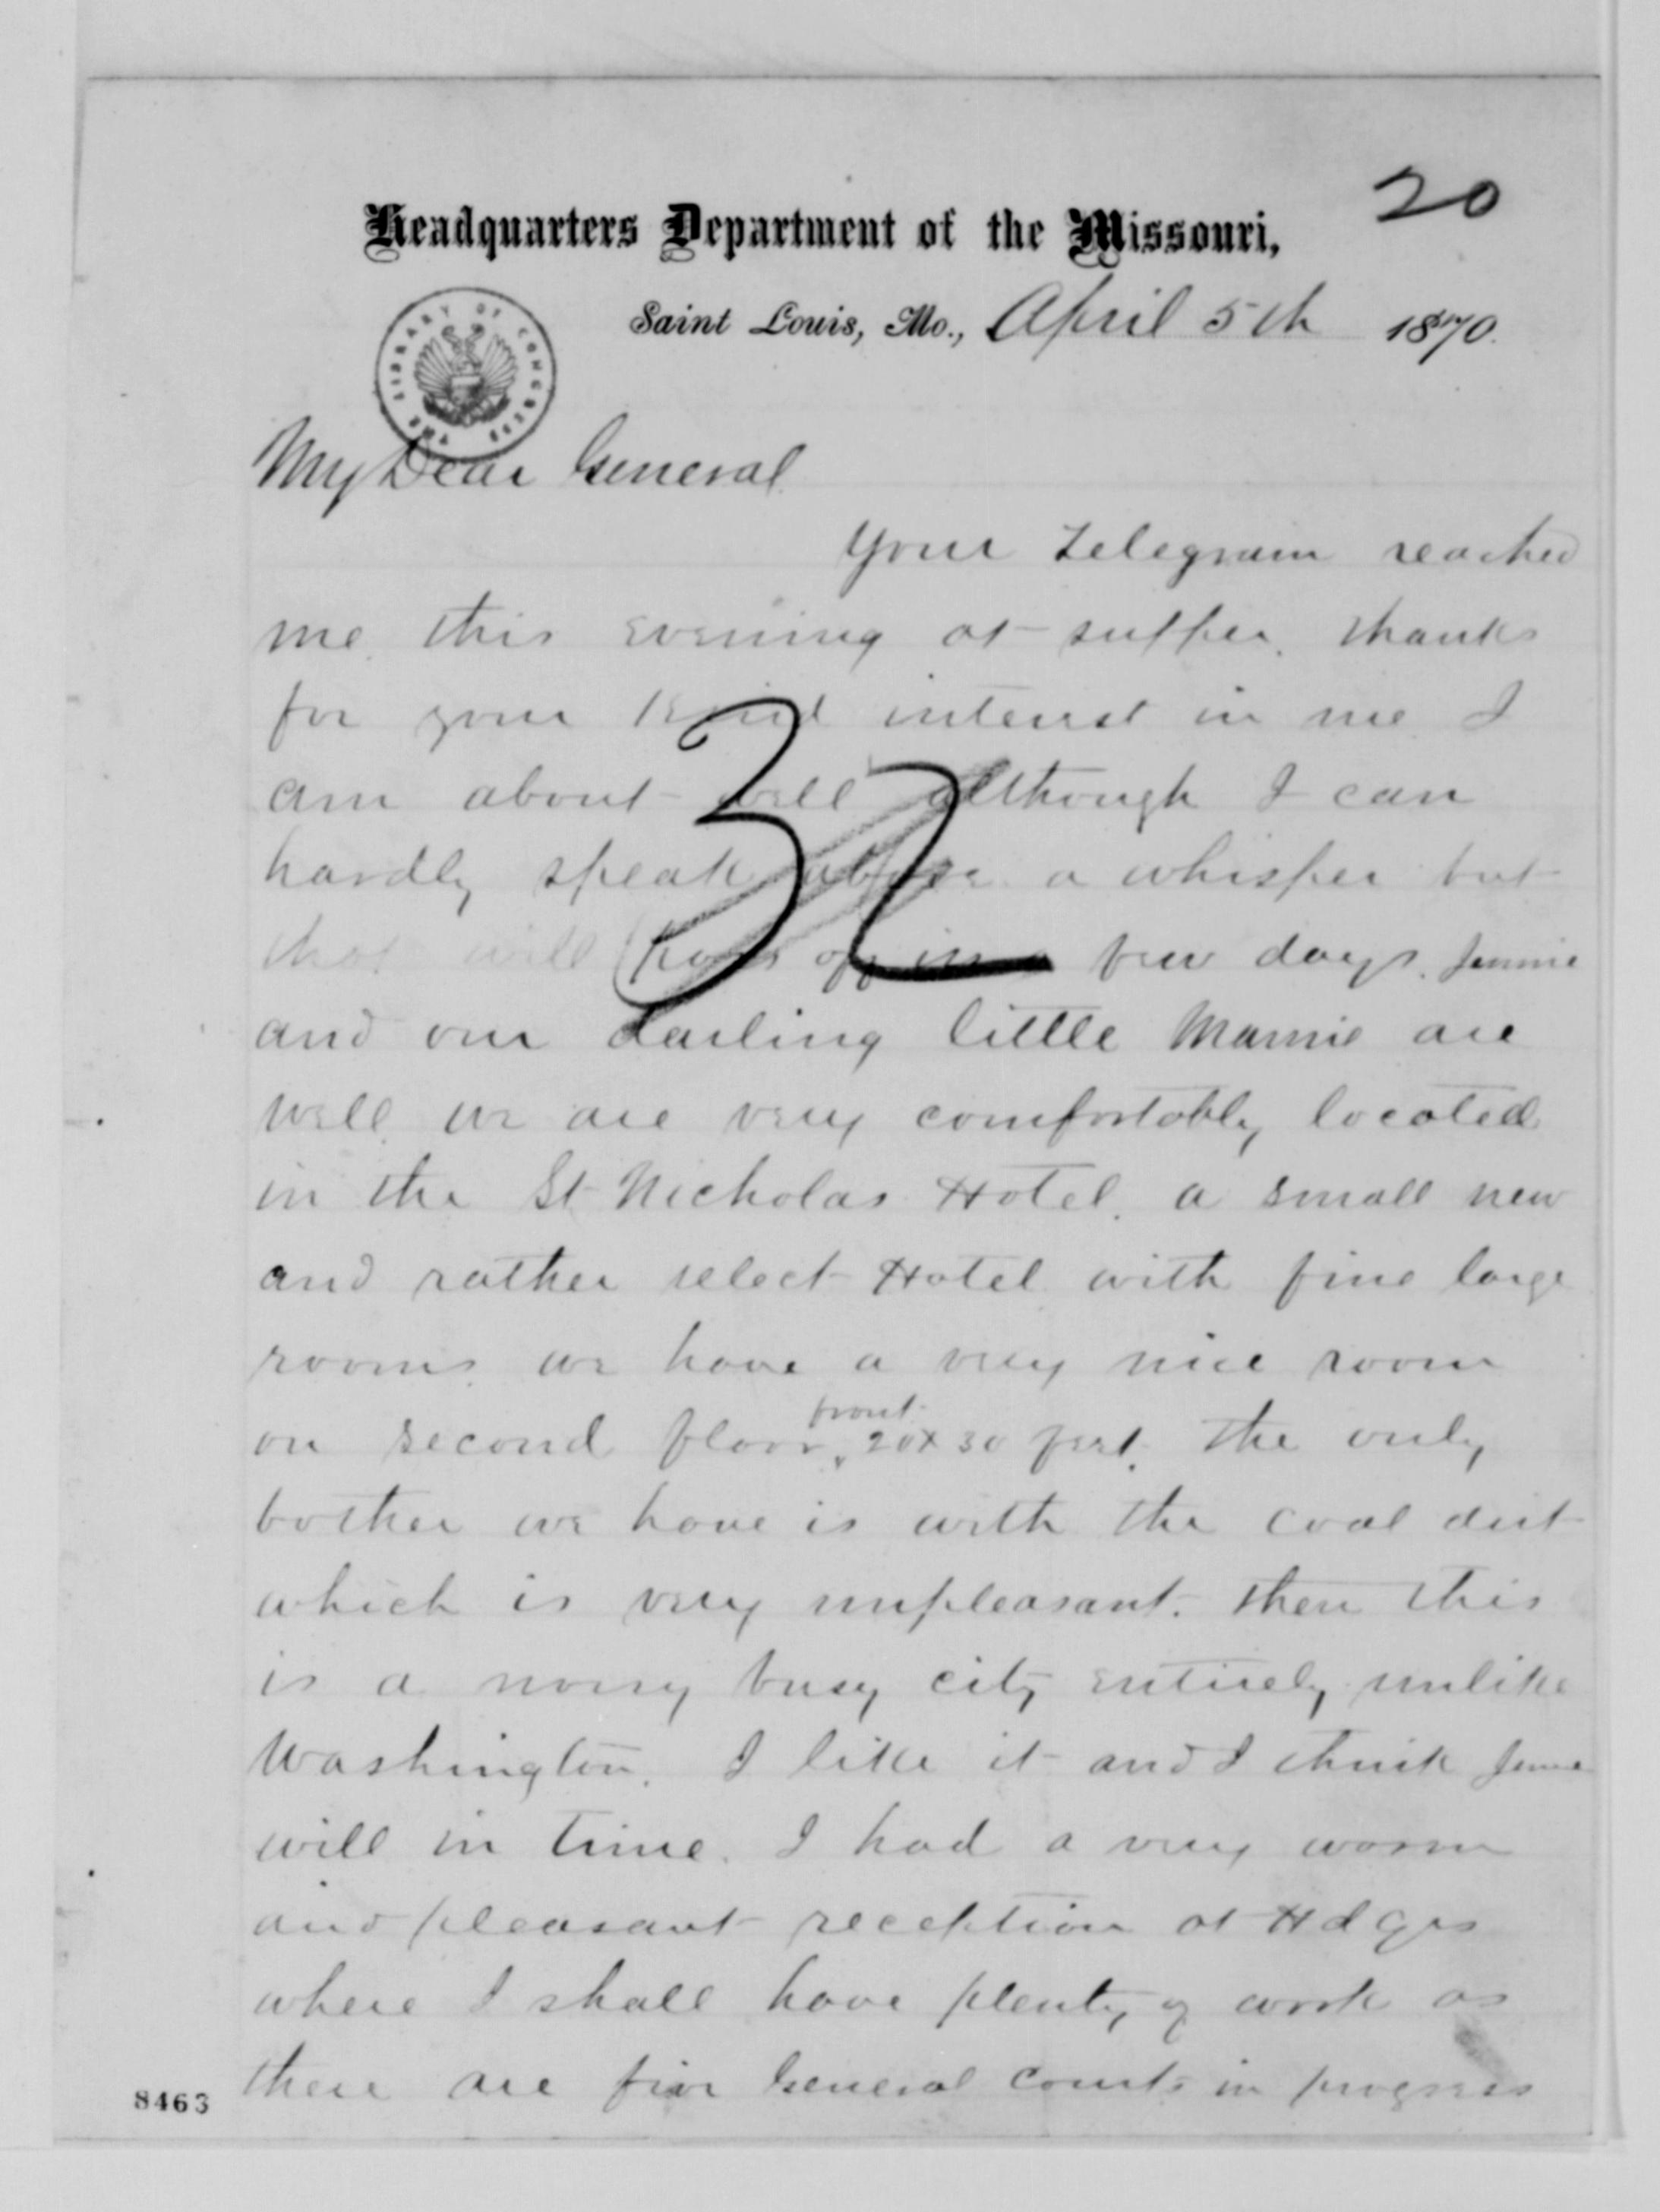 20
Headquarters Department of the Missouri,
Saint Louis, Mo., April 5th 1870.
THE LIBRARY OF CONGRESS
My Dear General
Your telegram reached
me this evening at supper. thanks
for your kind interest in me I
am about well although I can
hardly speak above a whisper but
that will pass off in a few days. Jennie
and our darling little Mamie are
well we are very comfortably located
in the St Nicholas Hotel. a small new
and rather select Hotel with fine large
rooms. we have a very nice room
front
on second floor, 20x30 feet. The only
bother we have is with the coal dirt
which is very unpleasant. then this
is a noisy busy city entirely unlike
Washington. I like it and I think Jennie
will in time. I had a very warm
and pleasant reception at Hdqrs
where I shall have plenty of work as
there are five General Courts in progress
32
8463